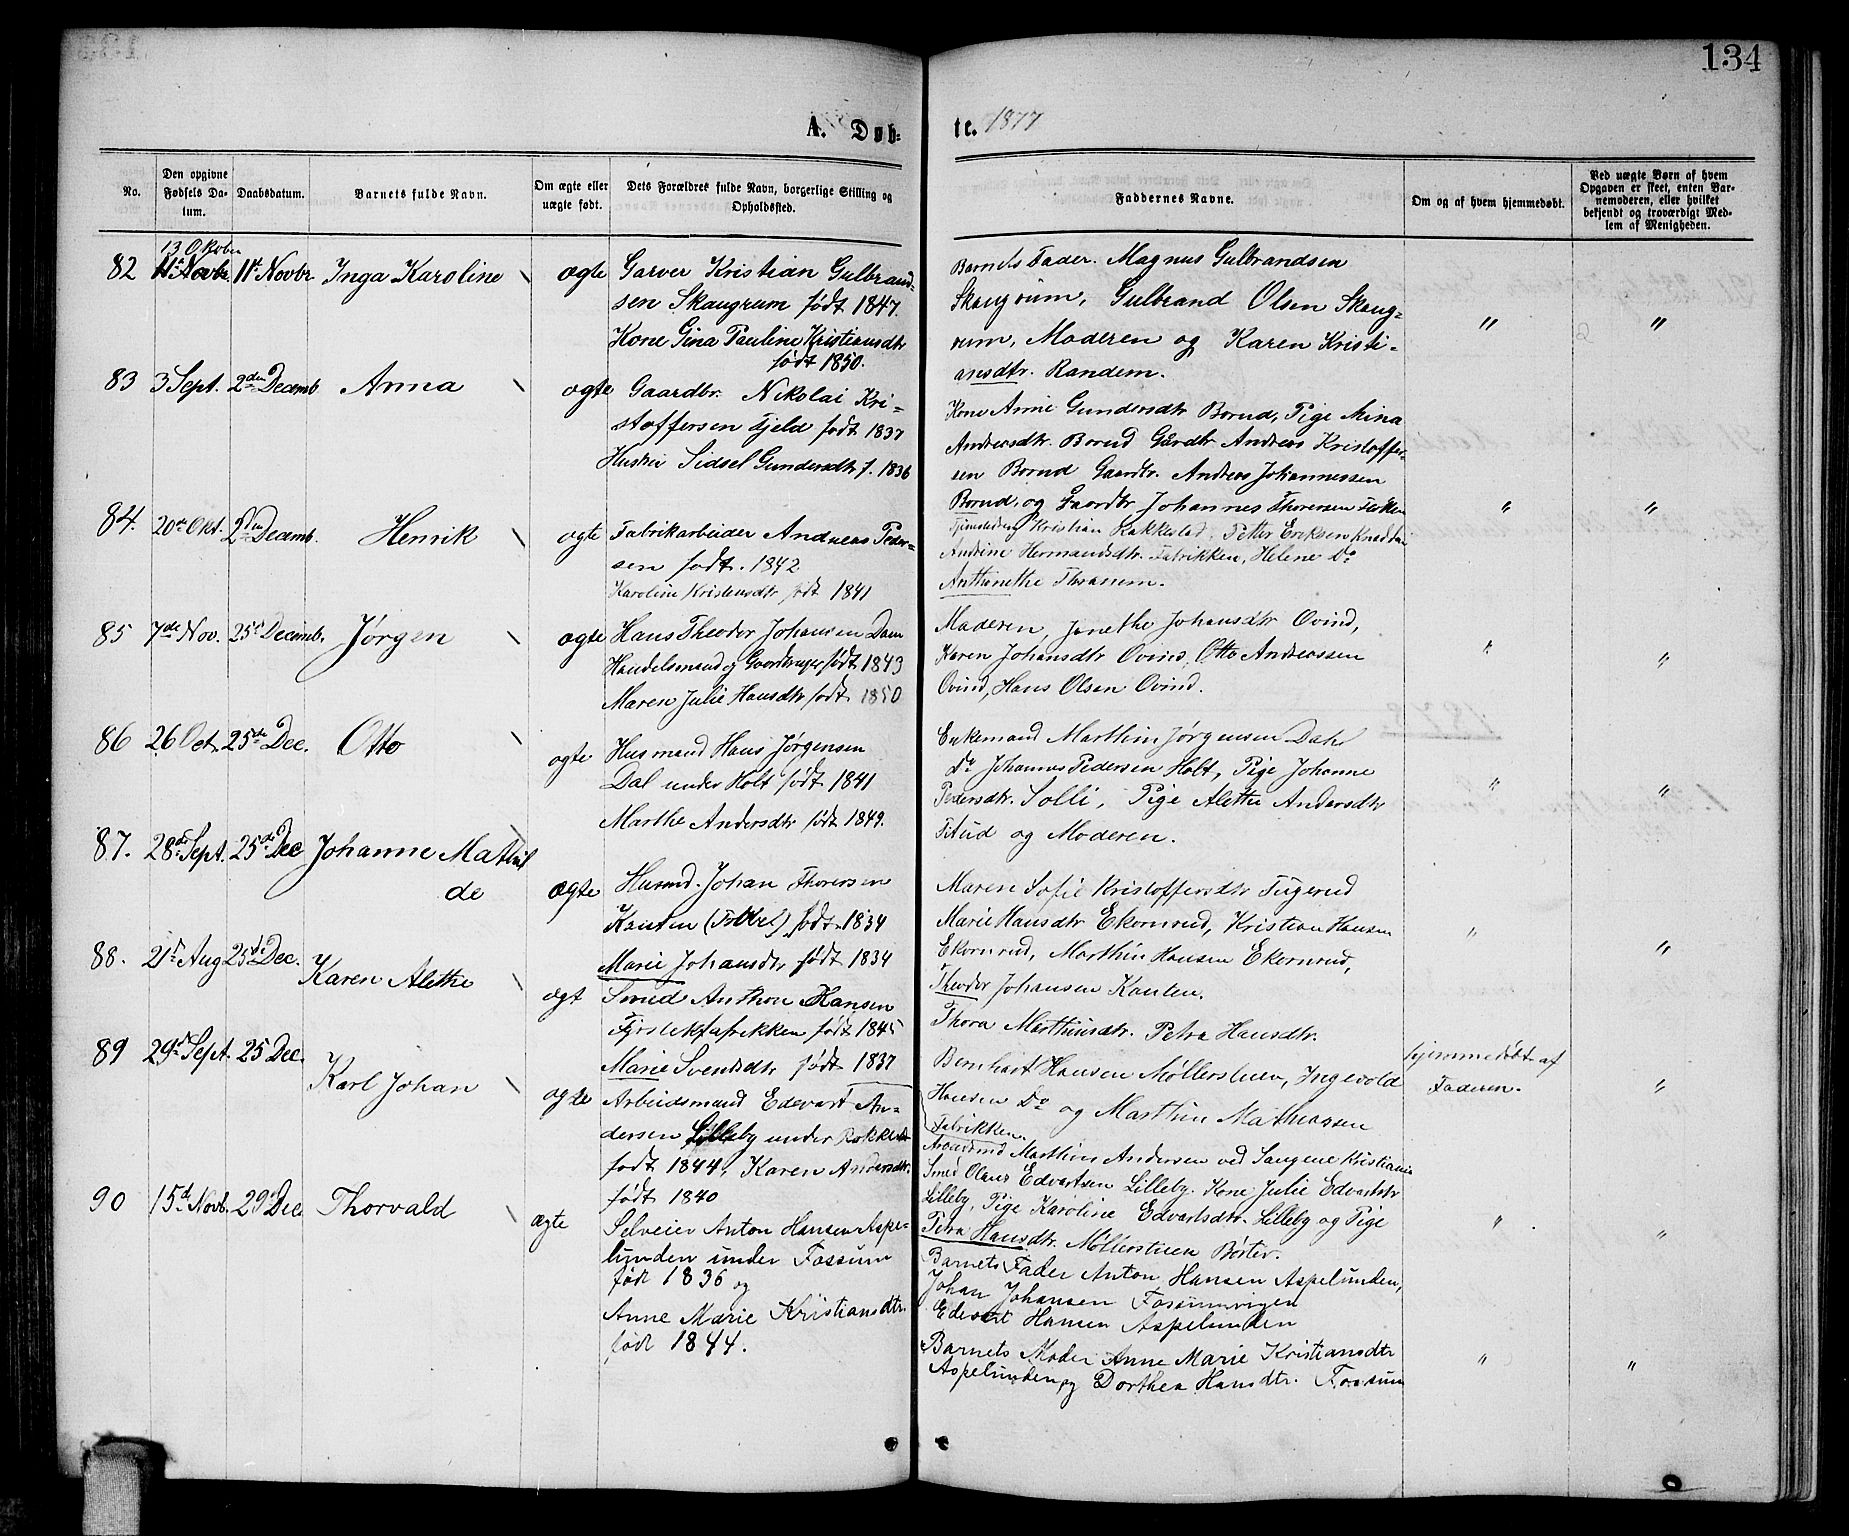 134
A. Døb-
te. 1877
No.
Den opgivne Fødsels Datum.
Daabsdatum.
Barnets fulde Navn.
Om ægte eller uægte født.
Dets Forældres fulde Navn, borgerlige Stilling og Opholdssted.
Faddernes Navne.
Om og af hvem hjemmedøbt.
Ved uægte Børn af hvem Opgaven er skeet, enten Barnemoderen, eller hvilket bekjendt og troværdigt Medlem af Menigheden.
82 13 Oktober 11te Novbr Inga Karoline ægte
Garver Kristian Gulbrand-
sen Skaugrum født 1847.
Kone Gina Pauline Kristiansdtr
født 1850.
Barnets Fader. Magnus Gulbrandsen
Skaugrum, Gulbrand Olsen Skaug-
rum, Moderen og Karen Kristi-
ansdtr. Randem.
" "
83 3 Sept. 2den Decemb Anna ægte
Gaardbr. Nikolai Kri-
stoffersen Fjeld født 1837
Sidsel Gundersdtr f. 1836
Kone Anne Gundersdtr Borud, Pige Mina
Andreasdtr. Borud Andreas Kristoffer-
sen Borud Gaardbr. Andreas Johannessen
Borud, og Gaardbr Johannes Thoresen
" "
84. 20de Okt. 2den Decemb. Henrik ægte
Fabrikarbeider Andreas Peder-
sen født. 1842
Karoline Kristensdtr født 1841
Kristian Rakkestad, Petter Eriksen
Andrine Hermansdtr. Fabrikken, Helene Do
Anthonethe Thranem.
85 7de Nov. 25de Decemb. Jørgen ægte
Hans Theodor Johansen Dam
Handelsmand og født 1843
Maren Julie Hansdtr født 1850
Moderen, Janethe Johansdtr Ovind,
Karen Johansdtr Ovind, Otto Andreassen
Ovind, Hans Olsen Ovind.
" "
86 26 Oct. 25de Dec. Otto ægte
Husmand Hans Jørgensen
Dal under Holt født 1841
Marthe Andersdtr født 1849.
Enkemand Marthin Jørgensen Dahl
Do Johannes Pedersen Holt, Pige Johanne
Pedersdtr. Solli, Pige Alethe Andersdtr
og Moderen.
" "
87. 28de Sept. 25de Dec Johanne Mathil
de ægte
Husmd. Johan Thoresen
Kauten født 1834
Marie Johansdtr født 1834
Maren Sofie Kristoffersdtr
Marie Hansdtr Ekornrud, Kristian Hansen
Ekornrud, Marthin Hansen Ekornrud,
Theodor Johansen Kauten.
" "
88. 21de Aug 25de Dec. Karen Alethe ægt
Anthon Hansen
født 1845
Marie Svendsdtr født 1837
Thora Marthinsdtr. Petra Hansdtr.
Bernhart Hansen Møllerstuen, Ingevold
Hansen Do og Marthin Mathiassen
Fabrikken.
hjemmedøbt af
Faderen. "
89 29de Sept. 25 Dec. Karl Johan ægte
Arbeidsmand Edevart An-
dersen Lilleby under
født 1844, Karen Andersdtr.
født 1840
Marthin Andersen ved Saugene Kristiania
Smed Olaus Edvartsen Lilleby. Kone Julie Edvartsdtr
Lilleby, Pige Karoline Edvartsdtr. Lilleby og Pige
Petra Hansdtr. Møllerstuen Børter.
" "
90 15de Novb. 29 Dec. Thorvald ægte
Selveier Anton Hansen Aspe-
lunden under Fossum
født 1836 og
Anne Marie Kristiansdtr.
født 1844.
Barnets Fader Anton Hansen Aspelunden,
Johan Johansen Fossumvigen
Edevart Hansen Aspelunden
Barnets Moder Anne Marie Kristiansdtr
Aspelunden og Dorthea Hansdtr. Fossum
" "